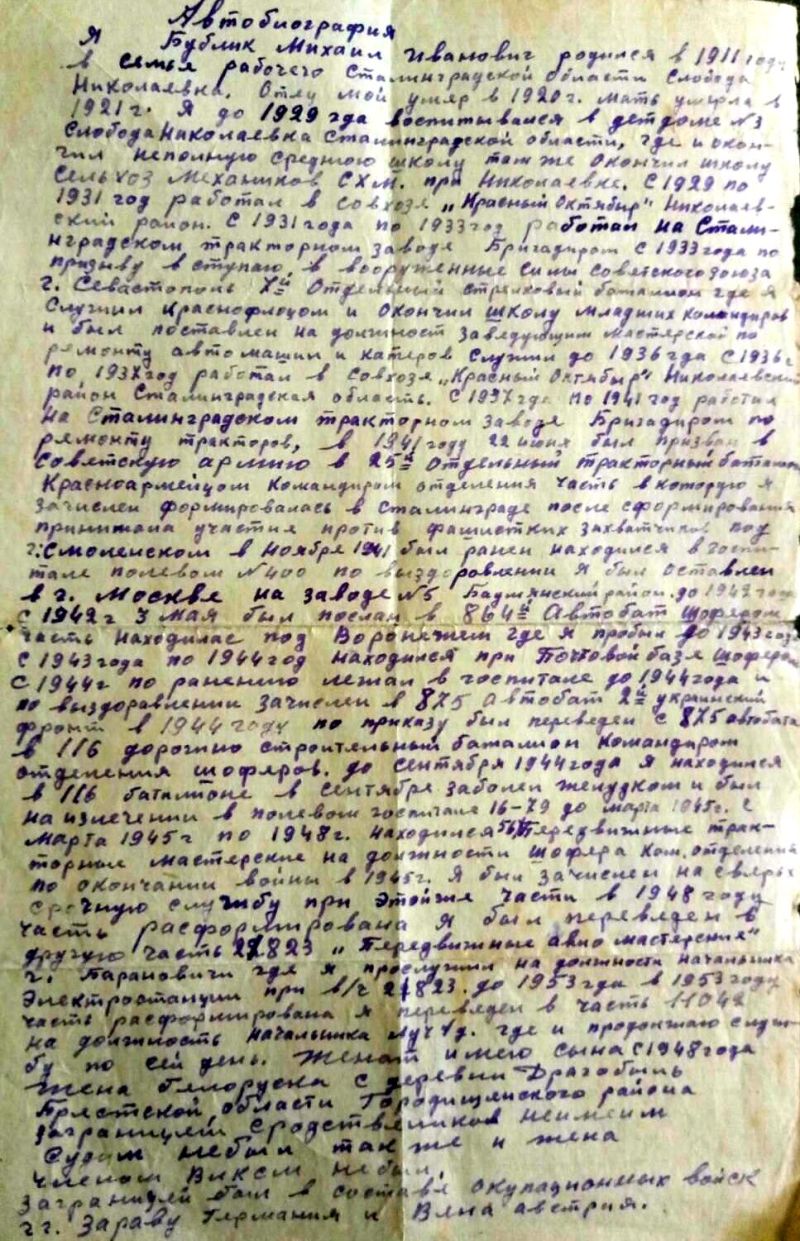 Автобиография
Я Бублик Михаил Иванович родился в 1911 году
в семье рабочего Сталинградской области Слобода
Николаевка. Отец мой умер в 1920 г. мать умерла в
1921 г. Я до 1929 гда воспитывался в детдоме №3
Слобода Николаевка Сталинградской области, где и окон-
чил неполную среднюю школу там же окончил школу
сельхоз механиков С Х М. при Николаевке. С 1929 по
1931 год работал в совхозе „Красный Октябыр" Николаев-
ский район. С 1931 года по 1933 год работал на Стали-
нградском тракторном заводе Бригадиром с 1933 года по
призыву в ступаю в вооруженные силы Советского Союза
г. Севастополь 7й Отдельный стрелковый баталион где я
служил краснофлоцом и окончил школу младших командиров
и был поставлен на должност заведующим мастерской по
ремонту автомашин и катеров служил до 1936 гда С 1936 г
по 1937 год работал в совхозе „Красный Октябыр" Николаевский
район Сталинградская область. С 1937 гда по 1941 год работал
на Сталинградском тракторном заводе Бригадиром по
ремонту тракторов, в 1941 году 22 июня был призван в
Советскую армию в 25й отдельный тракторный баталион
Красноармейцом командиром отделения часть в которую я
зачислен формировалась в Сталинграде после сформирования
принимала участия против фашистких захватчиков под
г. Смоленском в ноябре 1941 был ранен находился в госпи-
тале полевом №400 по выздоровлении я был оставлен
в г. Москве на заводе №5 район. до 1942 года
С 1942 г 3 мая был послан в 864й Автобат шофером
часть находилас под Воронежем где я пробыл до 1943 года
С 1943 года по 1944 год находился при Почтовой базе шофером
С 1944 г по ранению лежал в госпитале до 1944 года и
по выздоровлении зачислен в 875 автобат 2й украинский
фронт в 1944 году по приказу был переведен с 875 автобата
в 116 дорожно строительный баталион командиром
отделения шоферов. до сентября 1944 года я находился
в 116 баталионе в сентябре заболел желудком и был
на излечении в полевом госпитале 16-79 до марта 1945 г. с
марта 1945 г по 1948 г. находился Передвижные трак-
торные мастерские на должности шофера ком. отделения
по окончании войны в 1945 г. Я был зачислен на сверх
срочную службу при этойже части в 1948 году
часть расформирована я был переведен в
другую часть 21823 „Передвижные авио мастерские"
г. Барановичи где я прослужил на должности начальника
Электростанции при в/ч 21823. до 1953 гда в 1953 году
часть расформирована я переведен в часть 11042
на должность начальника где и продолжаю служ-
бу по сей день. Женат имею сына с 1948 года
жена белоруска с деревни Драгобыль
Брестской области Городищенского района
заграницей сродствеников неимеим
Судим небыл так же и жена
членом Влксм небыл.
заграницей был в составе окупационных войск
гг. Германия и Вена австрия.